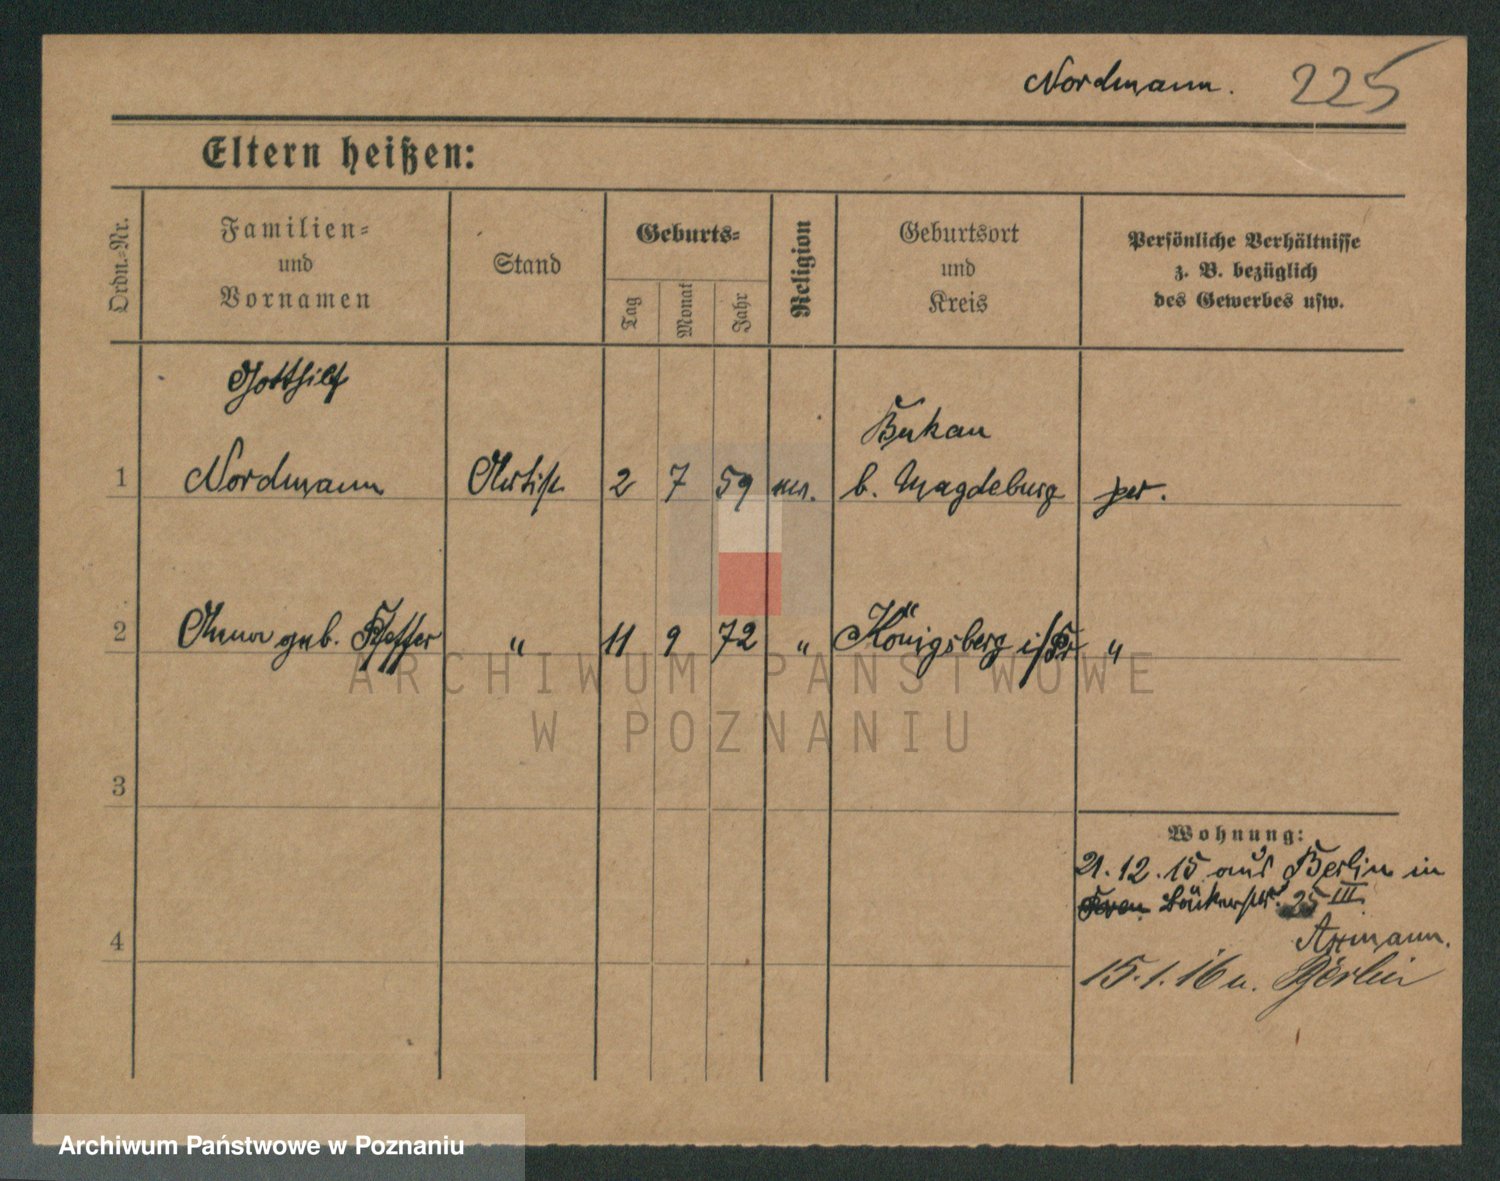 Nordmann. 225
Eltern heißen:
Ordn.=Nr.
Familien=
und
Vornamen
Stand
Geburts=
Tag
Monat
Jahr
Religion
Geburtsort
und
Kreis
Persönliche Verhältnisse
z. B. bezüglich
des Gewerbes usw.
Gotthilf
Bukau
1 Nordmann Artist 2 7 59 b. Magdeburg
2 Anna geb. " 11 9 72 " Königsberg i/Pr "
3
Wohnung:
21.12.15 aus Berlin in
25 III.
4
15.1.16 n. Berlin
ARCHIWUM PAŃSTWOWE
W POZNANIU
Archiwum Państwowe w Poznaniu